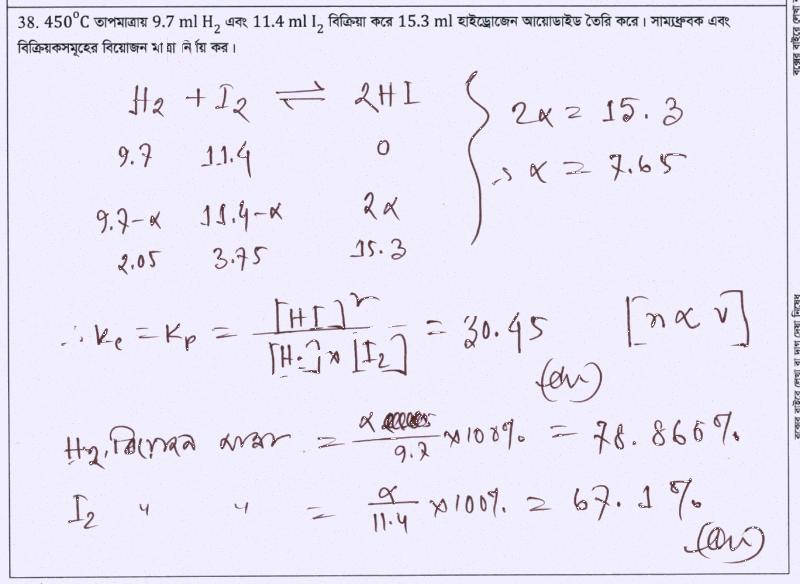 38. 450°C তাপমাত্রায় 9.7 ml H₂ এবং 11.4 ml I₂ বিক্রিয়া করে 15.3 ml হাইড্রোজেন আয়োডাইড তৈরি করে। সাম্যধ্রুবক এবং
বিক্রিয়কসমূহের বিয়োজন মাত্রা নির্ণয় কর।
H₂ + I₂ ⇌ 2HI
9.7 11.4 0
9.7-α 11.4-α 2α
2.05 3.75 15.3
2α = 15.3
∴ α = 7.65
∴ Kc = Kp = [HI]² / [H₂] × [I₂] = 30.45 [n ∝ v]
(Ans)
H₂ বিয়োজন মাত্রা = α / 9.7 × 100% = 78.866%
I₂ " " = α / 11.4 × 100% = 67.1%
(Ans)